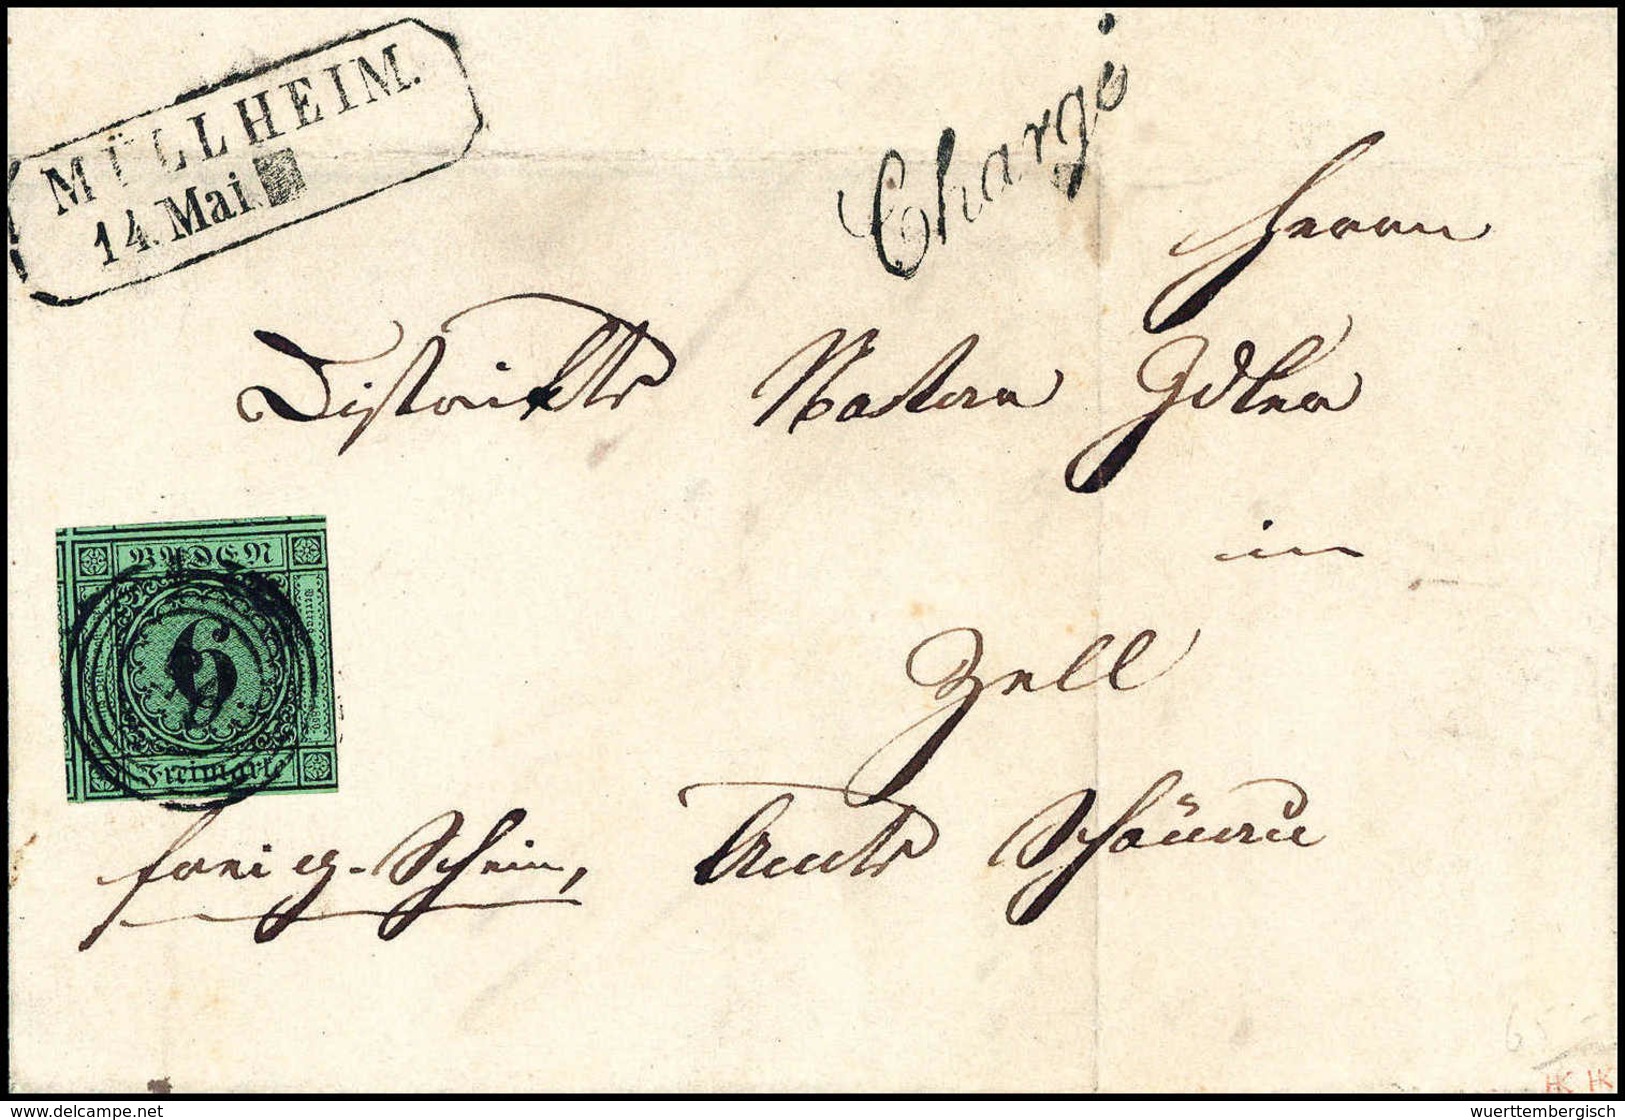 MÜLLHEIM.
14. Mai
Chargé
Herrn
Distrikts Notar Idler
in
Zell
Amts Schönau
frei g. Schein,
BADEN
6
Freimarke
65
HK HK
© www.delcampe.net
wuerttembergisch